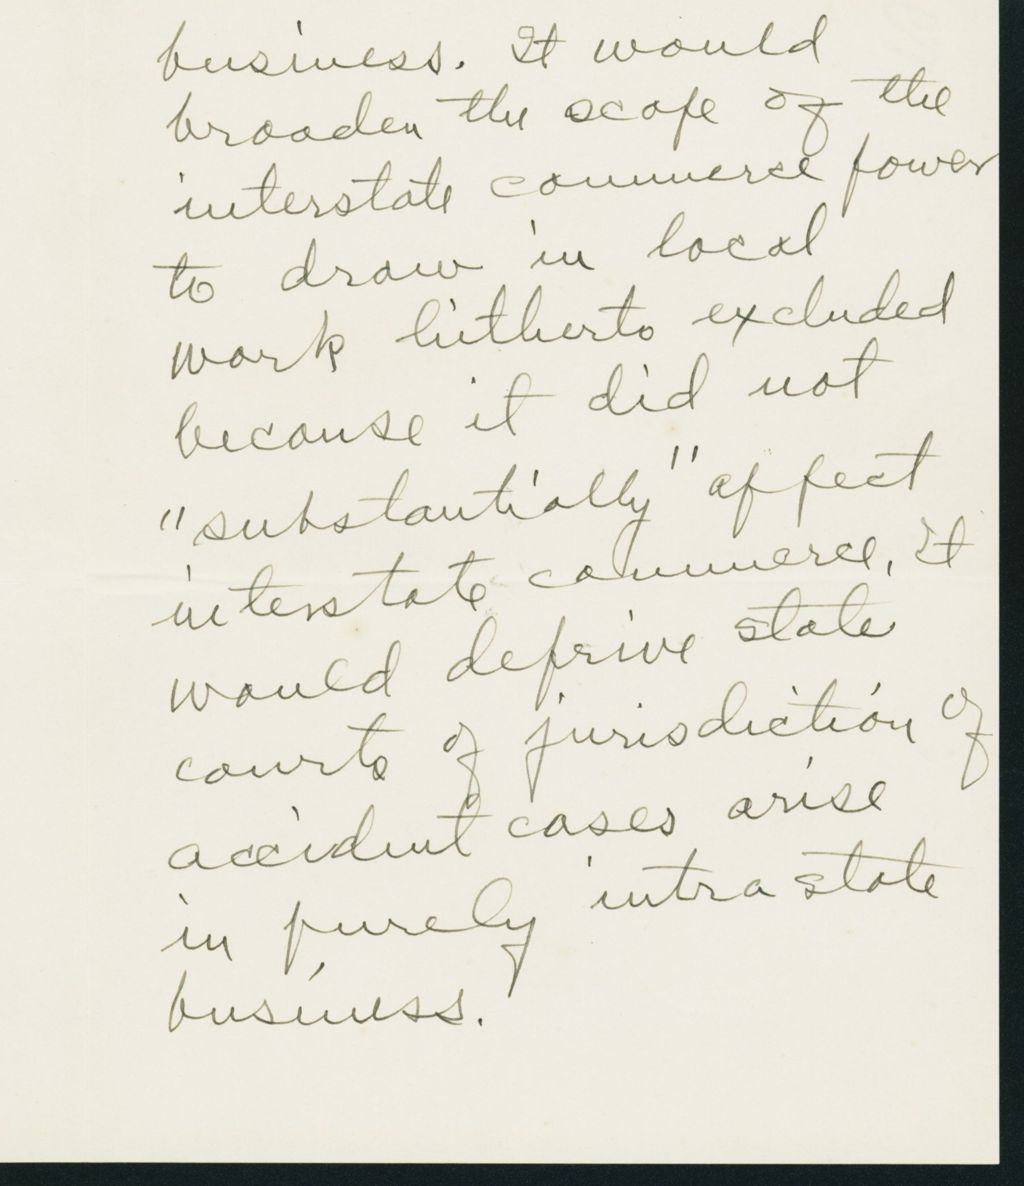 business. It would
broaden the scope of the
interstate commerce power
to draw in local
work hitherto excluded
because it did not
"substantially" affect
interstate commerce. It
would deprive state
courts of jurisdiction of
accident cases arise
in purely intrastate
business.